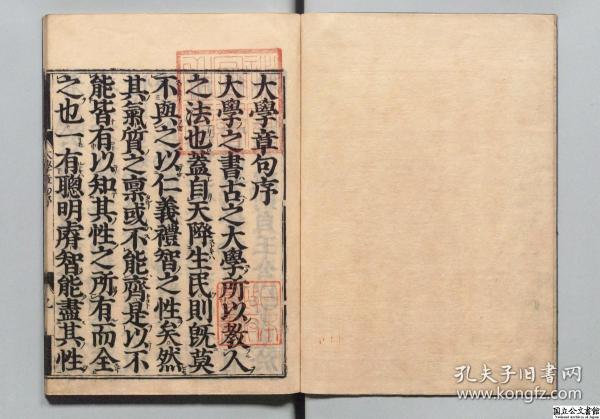 大學章句序
大學之書古之大學所以教人
之法也蓋自天降生民則既莫
不與之以仁義禮智之性矣然
其氣質之稟或不能齊是以不
能皆有以知其性之所有而全
之也一有聰明睿智能盡其性
孔夫子旧书网
www.kongfz.com
国立公文書館
National Archives of Japan